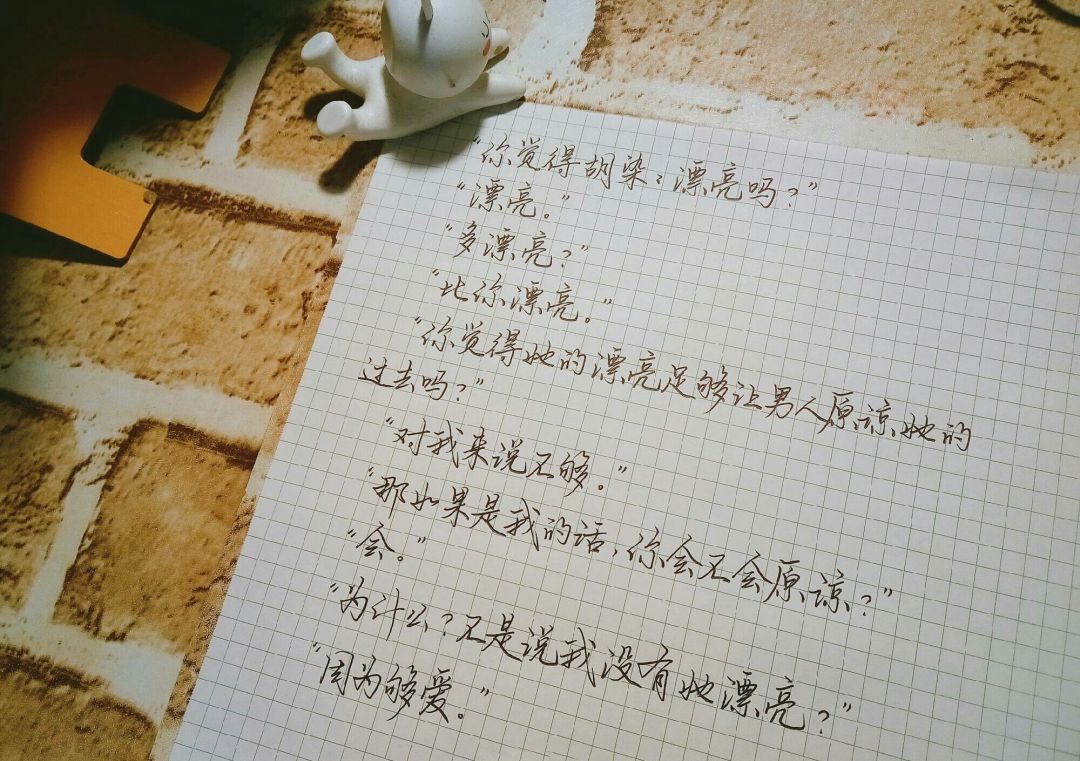 “你觉得胡染：漂亮吗？”
“漂亮。”
“多漂亮？”
“比你漂亮。”
“你觉得她的漂亮足够让男人原谅她的
过去吗？”
“对我来说不够。”
“那如果是我的话，你会不会原谅？”
“会。”
“为什么？不是说我没有她漂亮？”
“因为够爱。”